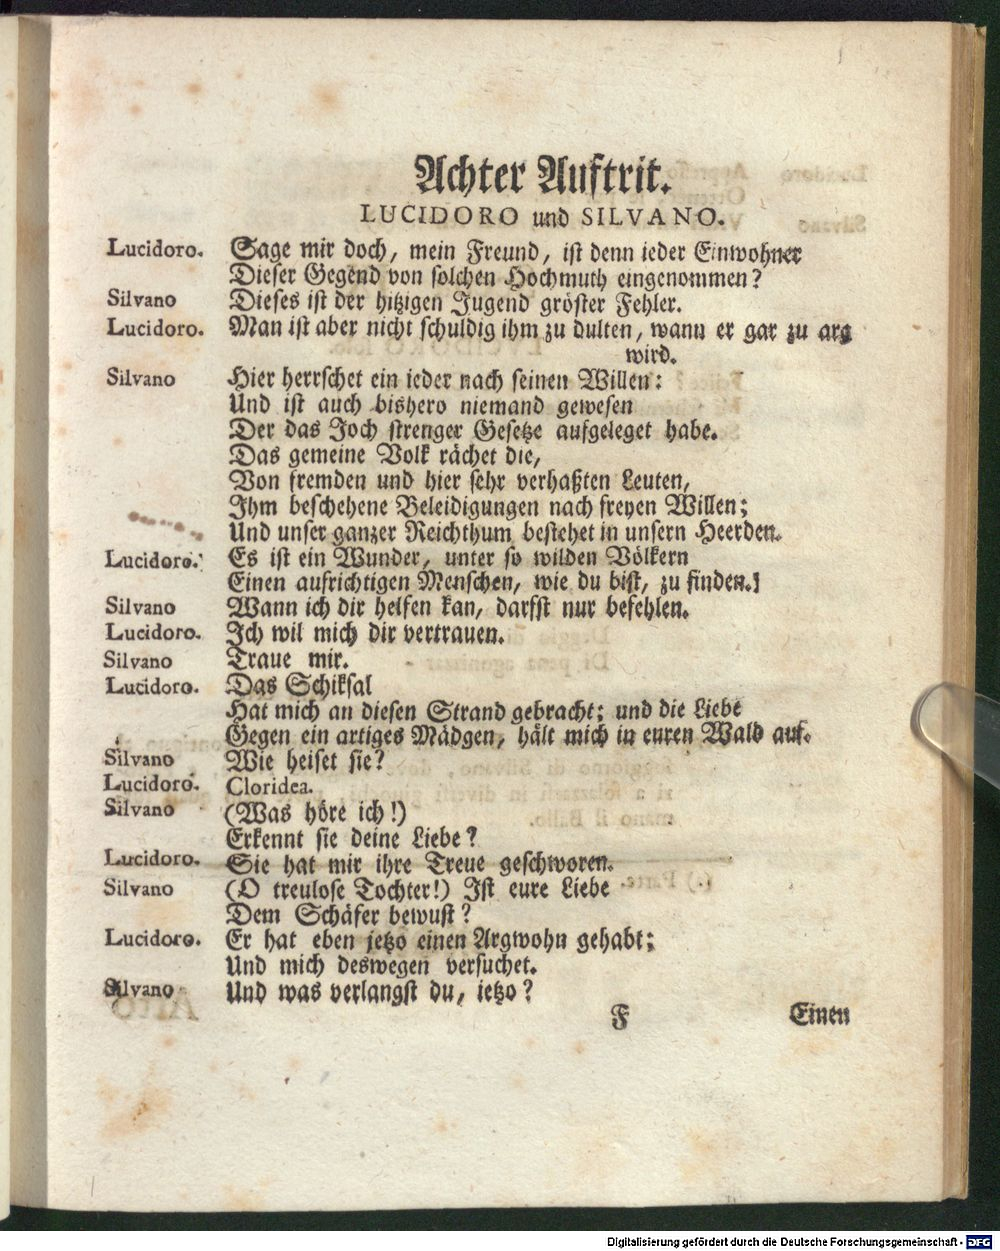 Achter Auftrit.
LUCIDORO und SILVANO.
Lucidoro. Sage mir doch, mein Freund, ist denn ieder Einwohner
Dieser Gegend von solchen Hochmuth eingenommen?
Silvano Dieses ist der hitzigen Jugend gröster Fehler.
Lucidoro. Man ist aber nicht schuldig ihm zu dulten, wann er gar zu arg
wird.
Silvano Hier herrschet ein ieder nach seinen Willen:
Und ist auch bishero niemand gewesen
Der das Joch strenger Gesetze aufgeleget habe.
Das gemeine Volk rächet die,
Von fremden und hier sehr verhaßten Leuten,
Ihm beschehene Beleidigungen nach freyen Willen;
Und unser ganzer Reichthum bestehet in unsern Heerden.
Lucidoro. Es ist ein Wunder, unter so wilden Völkern
Einen aufrichtigen Menschen, wie du bist, zu finden.]
Silvano Wann ich dir helfen kan, darfst nur befehlen.
Lucidoro. Ich wil mich dir vertrauen.
Silvano Traue mir.
Lucidoro. Das Schiksal
Hat mich an diesen Strand gebracht; und die Liebe
Gegen ein artiges Mädgen, hält mich in euren Wald auf.
Silvano Wie heiset sie?
Lucidoro. Cloridea.
Silvano (Was höre ich!)
Erkennt sie deine Liebe?
Lucidoro. Sie hat mir ihre Treue geschworen.
Silvano (O treulose Tochter!) Ist eure Liebe
Dem Schäfer bewust?
Lucidoro. Er hat eben jetzo einen Argwohn gehabt;
Und mich deswegen versuchet.
Silvano Und was verlangst du, ietzo?
F Einen
Digitalisierung gefördert durch die Deutsche Forschungsgemeinschaft - DFG